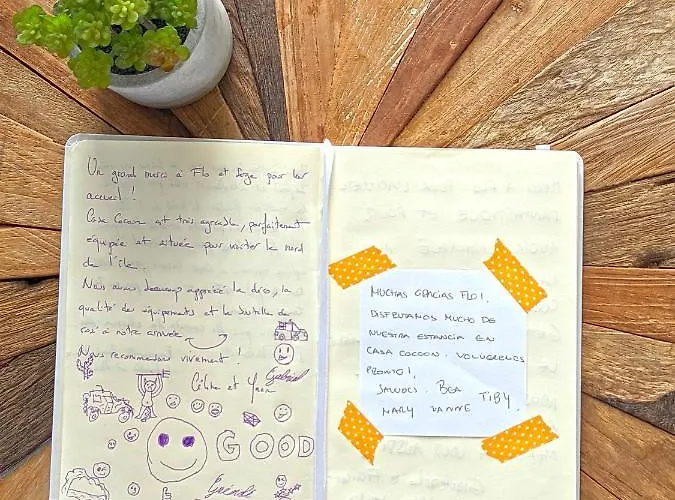 Un grand merci à Flo et Serge pour leur
accueil !
Casa Cocoon est très agréable, parfaitement
équipée et située pour visiter le nord
de l'île.
Nous avons beaucoup apprécié la déco, la
qualité des équipements et la bouteille de
rosé à notre arrivée
Nous recommandons vivement !
Gabriel
Céline et Yann
GOOD
MUCHAS GRACIAS FLO!,
DISFRUTAMOS MUCHO DE
NUESTRA ESTANCIA EN
CASA COCOON. VOLVEREMOS
PRONTO!,
SALUDOS. BEA TIBY.
MARY